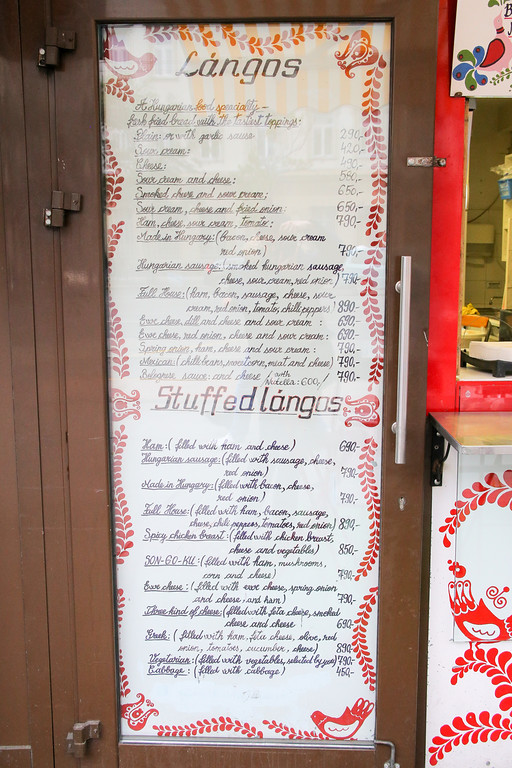 Lángos
A Hungarian food speciality -
fresh fried bread with the tastiest toppings:
Plain: or with garlic sause 290,-
Sour cream: 420,-
Cheese: 490,-
Sour cream and cheese: 550,-
Smoked cheese and sour cream: 650,-
Sour cream, cheese and fried onion: 650,-
Ham, cheese, sour cream, tomato: 790,-
Made in Hungary: (bacon, cheese, sour cream
red onion) 790,-
Hungarian sausage: (smoked hungarian sausage,
cheese, sour cream, red onion) 790,-
Full House: (ham, bacon, sausage, cheese, sour
cream, red onion, tomato, chilli peppers) 890,-
Ewe chee, dill and cheese and sour cream : 690,-
Ewe cheese, red onion, cheese and sour cream: 690,-
Spring onion, ham, cheese and sour cream : 790,-
Mexican: (chilli beans, sweetcorn, meat and cheese) 790,-
Bolognese sauce: and cheese / with Nutella: 600,/ 790,-
Stuffed lángos
Ham: ( filled with ham and cheese) 690,-
Hungarian sausage: (filled with sausage, cheese,
red onion) 790,-
Made in Hungary: (filled with bacon, cheese,
red onion) 790,-
Full House: (filled with ham, bacon, sausage,
cheese, chili peppers, tomatoes, red onion) 890,-
Spicy chicken breast: (filled with chicken breast,
cheese and vegetables) 850,-
SON-GO-KU: (filled with ham, mushrooms,
corn and cheese) 790,-
Ewe cheese : (filled with ewe cheese, spring onion
and cheese, and ham) 790,-
Three kind of cheese: (filled with feta cheese, smoked
cheese and cheese 690
Greek: ( filled with ham, feta cheese, olive, red
onion, tomatoes, cucumber, cheese) 890,-
Vegetarian: (filled with vegetables, selected by you) 790,-
Cabbage : (filled with cabbage) 450,-